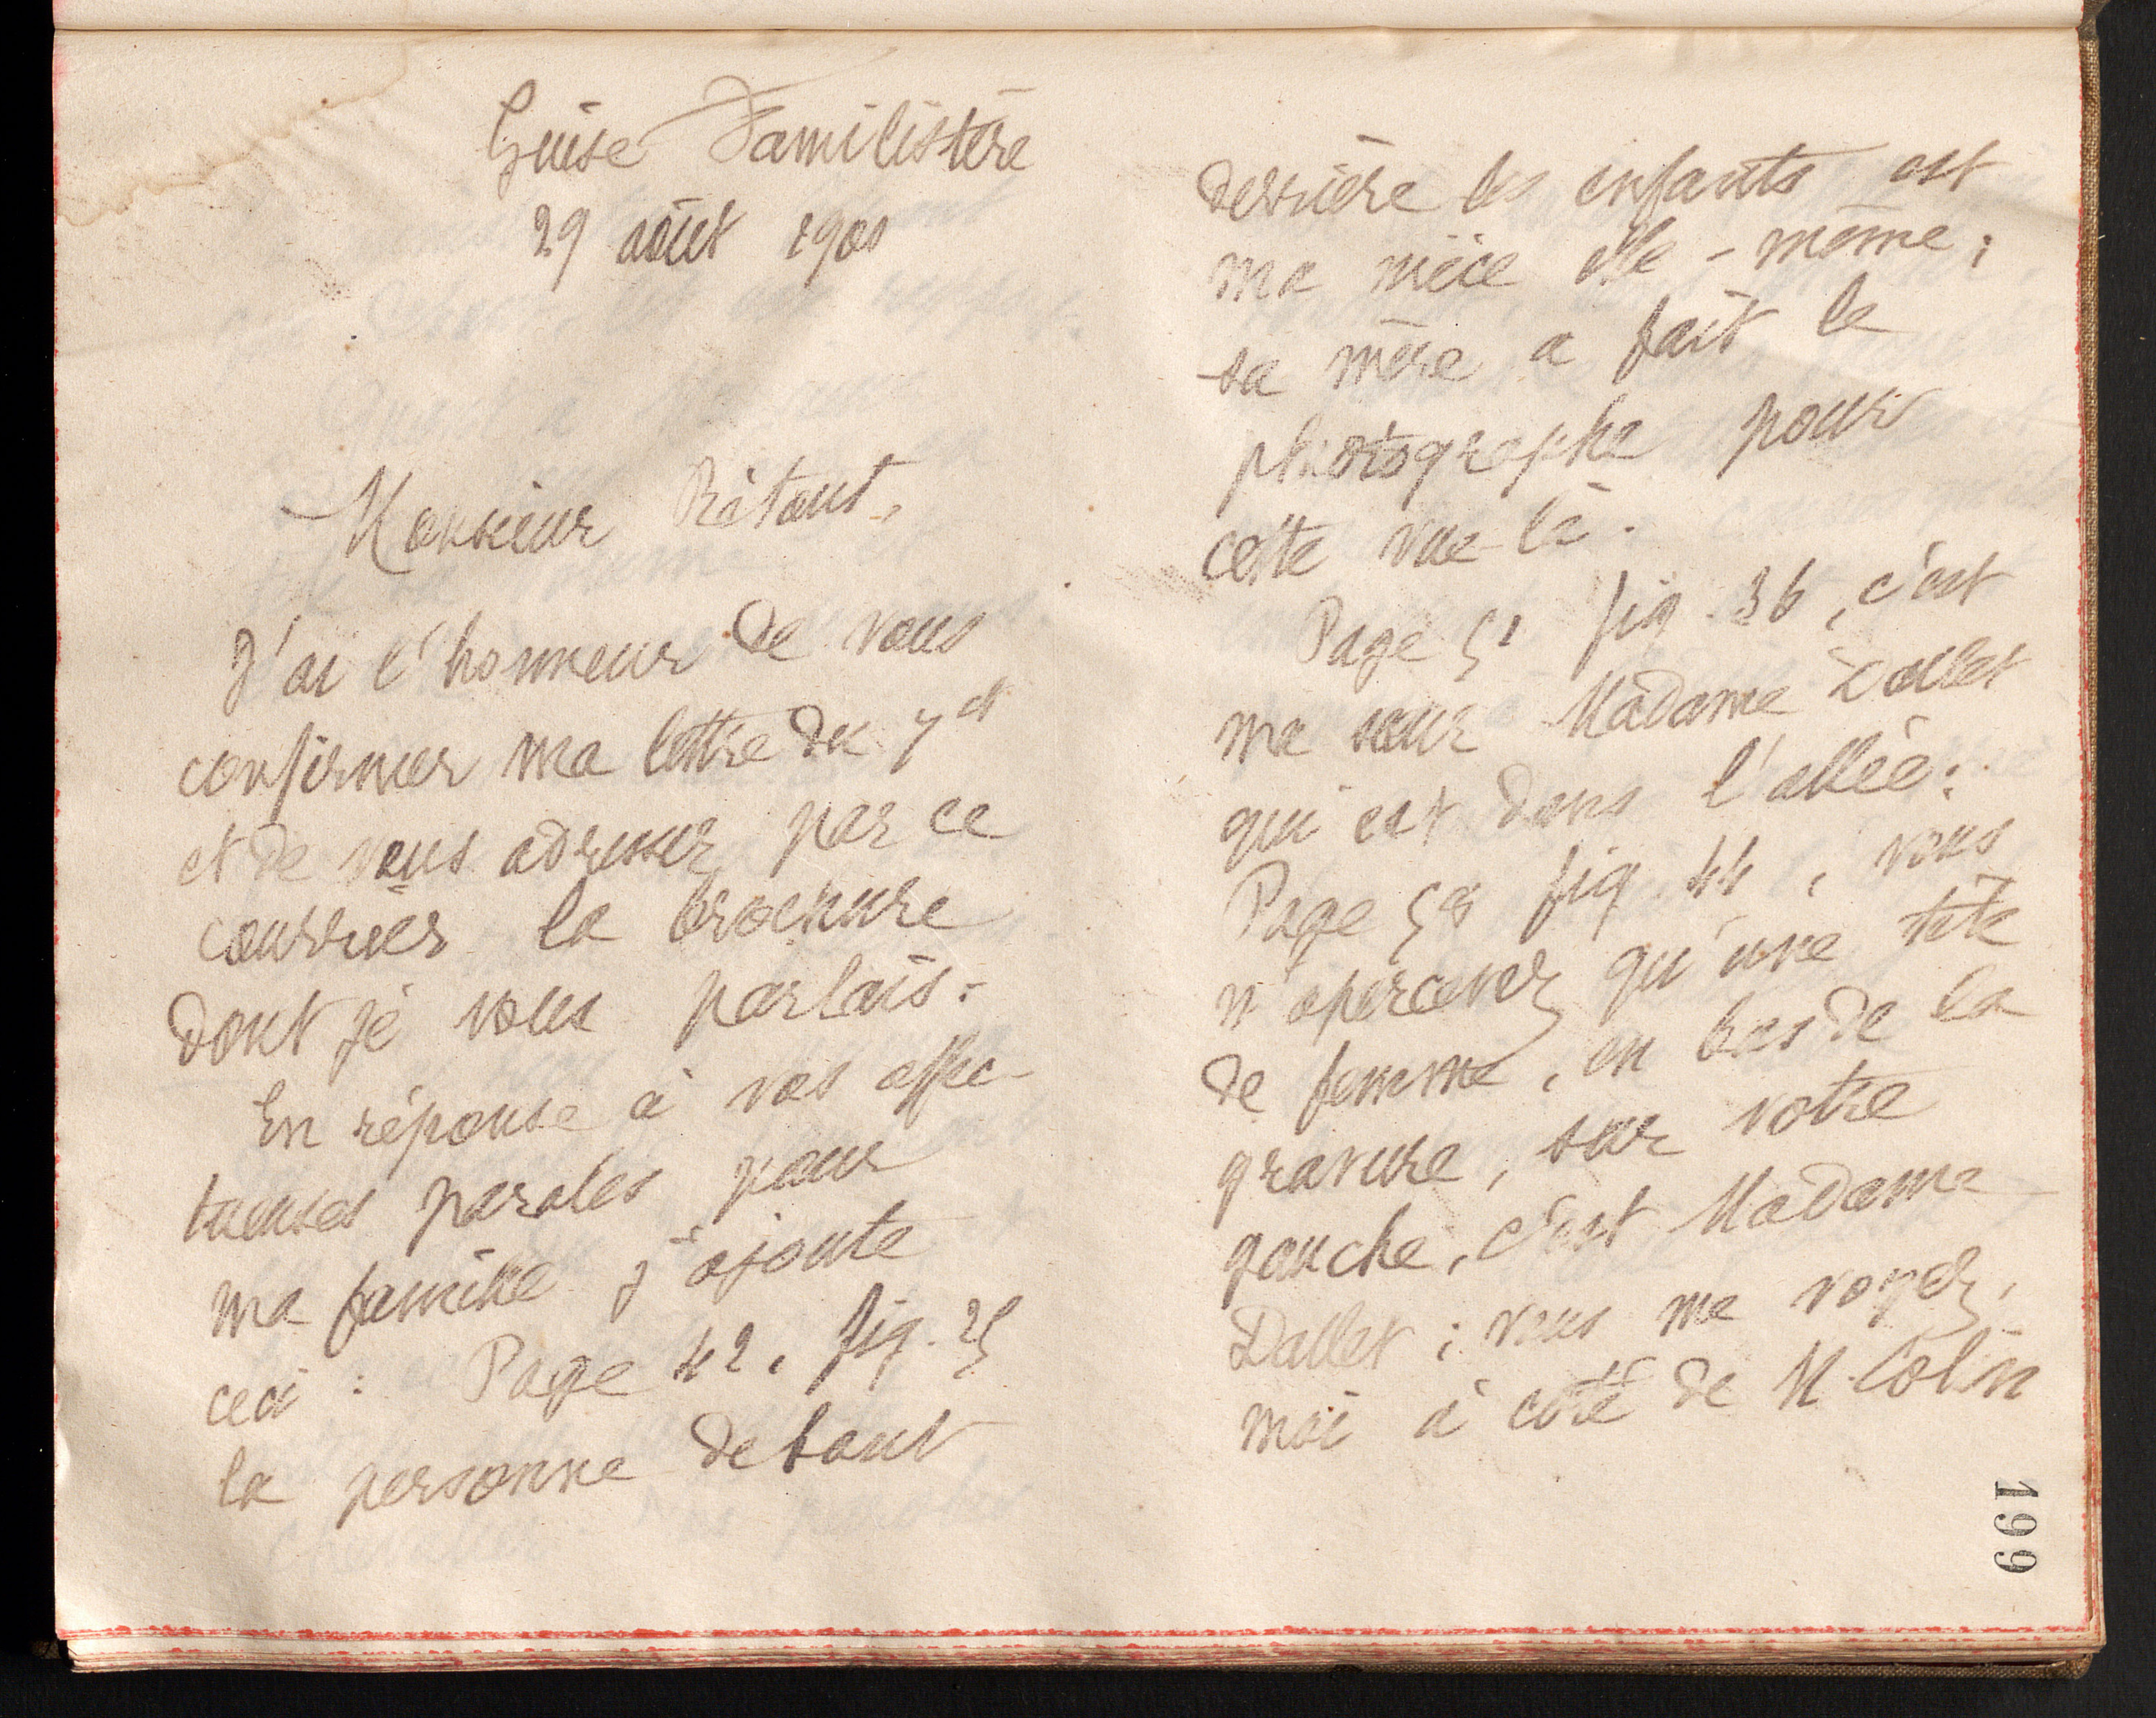 Guise Familistère
29 août 1901
Monsieur Rétaut,
J'ai l'honneur de vous
confirmer ma lettre du 7 ct
et de vous adresser par ce
courrier la brochure
dont je vous parlais.
En réponse à vos affec-
tueuses paroles pour
ma famille j'ajoute
ceci : Page 42, fig. 25
la personne debout
derrière les enfants est
ma nièce elle-même ;
sa mère a fait le
photographe pour
cette vue-là.
Page 51 fig. 36, c'est
ma sœur Madame Dallet
qui est dans l'allée.
Page 58 fig. 44, vous
n'apercevez qu'une tête
de femme, en bas de la
gravure, sur votre
gauche, c'est Madame
Dallet ; vous me voyez,
moi à côté de M. Colin
199